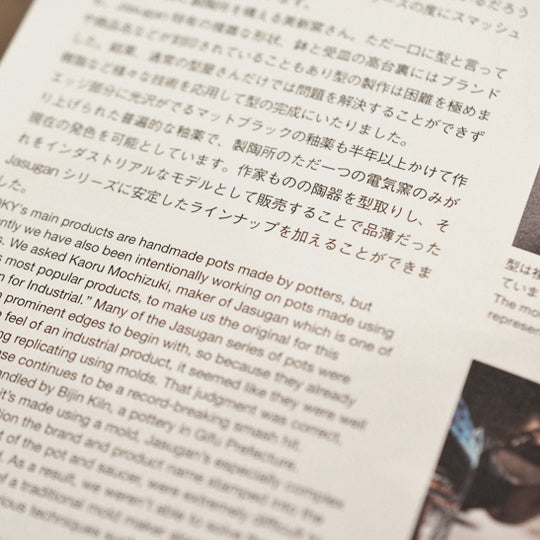 ーズの度にスマッシュ
製陶所を構える美新窯さん。ただ一口に型と言って
、Jasugan 特有の複雑な形状、鉢と受皿の高台裏にはブランド
や商品名などが刻印されていることもあり型の製作は困難を極めま
した。結果、通常の型屋さんだけでは問題を解決することができず
樹脂など様々な技術を応用して型の完成にいたりました。
エッジ部分に光沢がでるマットブラックの釉薬も半年以上かけて作
り上げられた普遍的な釉薬で、製陶所のただ一つの電気窯のみが
現在の発色を可能としています。作家ものの陶器を型取りし、そ
れをインダストリアルなモデルとして販売することで品薄だった
Jasugan シリーズに安定したラインナップを加えることができま
した。
OKY's main products are handmade pots made by potters, but
ently we have also been intentionally working on pots made using
s. We asked Kaoru Mochizuki, maker of Jasugan which is one of
s most popular products, to make us the original for this
n for Industrial." Many of the Jasugan series of pots were
prominent edges to begin with, so because they already
feel of an industrial product, it seemed like they were well
ng replicating using molds. That judgment was correct,
ase continues to be a record-breaking smash hit.
andled by Bijin Kiln, a pottery in Gifu Prefecture.
it's made using a mold, Jasugan's especially complex
tion the brand and product name stamped into the
t of the pot and saucer, were extremely difficult to
d. As a result, we weren't able to solve
of a traditional mold maker
rious techniques
型は複
ていま
The mo
represen